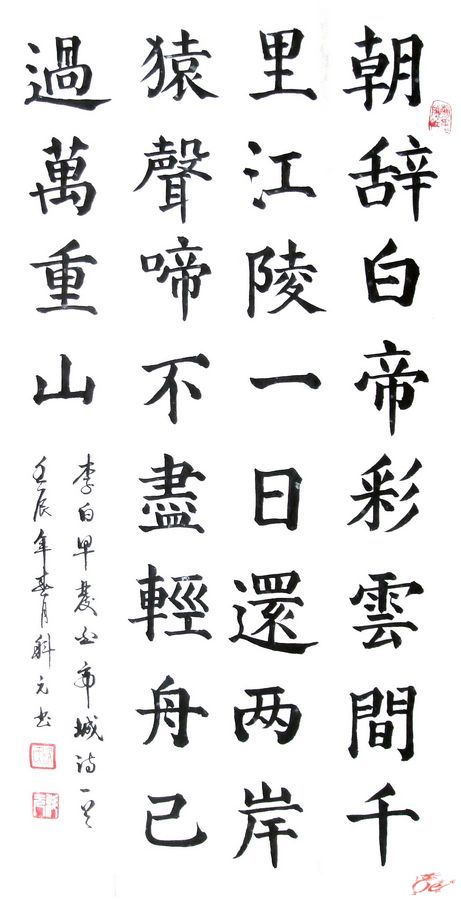 朝辞白帝彩雲間千
里江陵一日還两岸
猿聲啼不盡輕舟已
過萬重山
李白早發白帝城诗一首
壬辰年春月元书